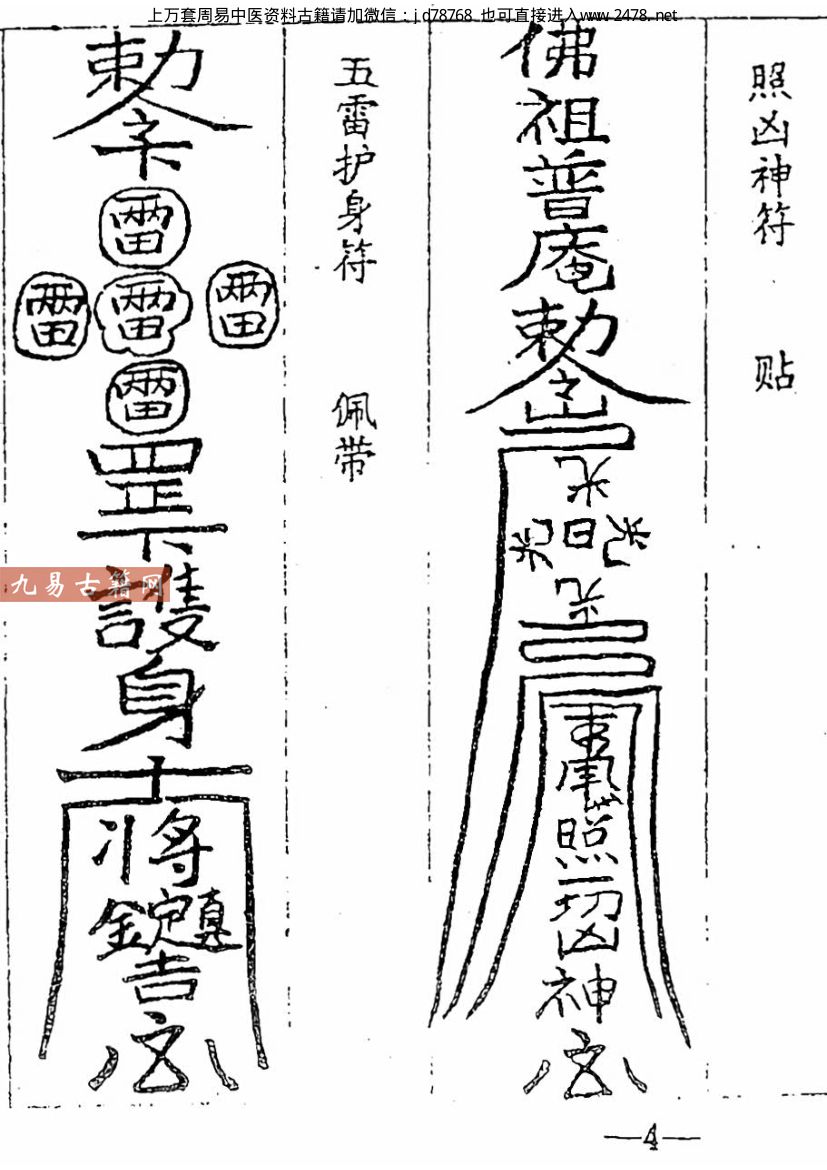 上万套周易中医资料古籍请加微信：jd78768 也可直接进入www.2478.net
照凶神符 贴
佛祖普庵勅令
光
光日光
光
照一切凶神
五雷护身符 佩带
勅令
雷
雷雷雷
雷
罡下護身
将
鎮吉
九易古籍网
—4—